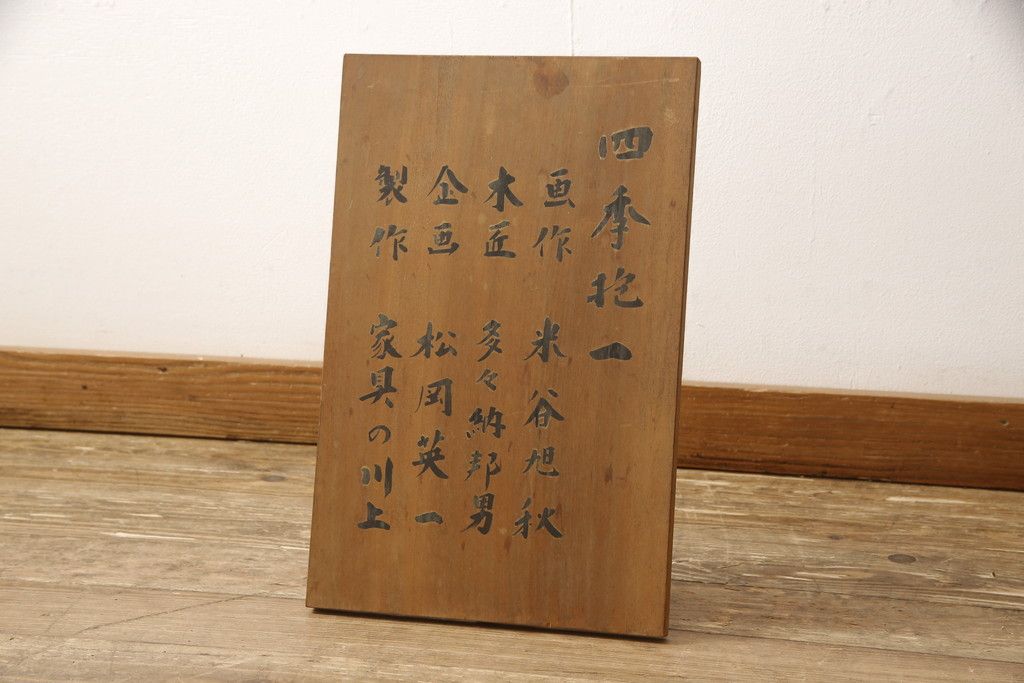 四季抱一
画作 米谷旭秋
木匠 多々納邦男
企画 松岡英一
製作 家具の川上